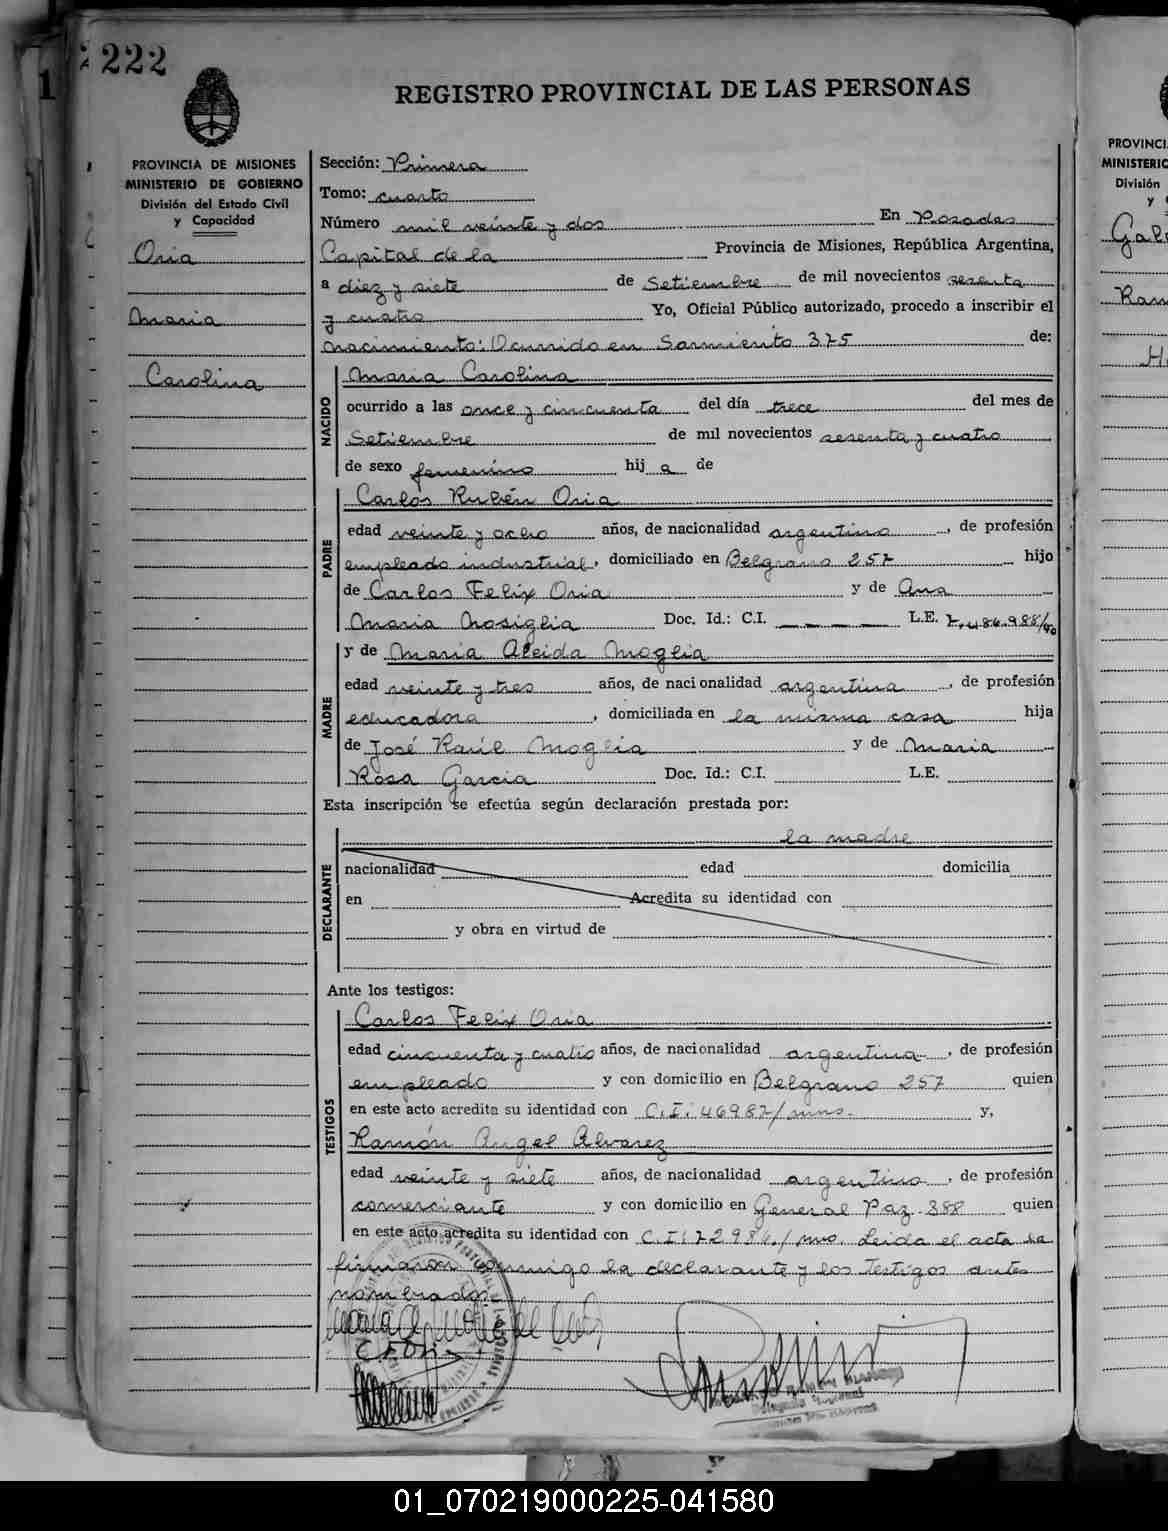 222
REGISTRO PROVINCIAL DE LAS PERSONAS
PROVINCIA DE MISIONES
MINISTERIO DE GOBIERNO
División del Estado Civil
y Capacidad
Oria
Maria
Carolina
Sección: Primera
Tomo: cuarto
Número mil veinte y dos En Posadas
Capital de la Provincia de Misiones, República Argentina,
a diez y siete de Setiembre de mil novecientos sesenta
y cuatro Yo, Oficial Público autorizado, procedo a inscribir el
nacimiento: Ocurrido en Sarmiento 375 de:
NACIDO
Maria Carolina
ocurrido a las once y cincuenta del día trece del mes de
Setiembre de mil novecientos sesenta y cuatro
de sexo femenino hij a de
PADRE
Carlos Rubén Oria
edad veinte y ocho años, de nacionalidad argentino, de profesión
empleado industrial, domiciliado en Belgrano 257 hijo
de Carlos Felix Oria y de Ana
Maria Nosiglia Doc. Id.: C.I. — — — — L.E. 7.486.988/
MADRE
y de Maria Aleida Moglia
edad veinte y tres años, de nacionalidad argentina, de profesión
educadora, domiciliada en la misma casa hija
de José Raúl Moglia y de Maria
Rosa Garcia Doc. Id.: C.I. L.E.
Esta inscripción se efectúa según declaración prestada por:
DECLARANTE
la madre
nacionalidad edad domicilia
en Acredita su identidad con
y obra en virtud de
Ante los testigos:
TESTIGOS
Carlos Felix Oria
edad cincuenta y cuatro años, de nacionalidad argentina, de profesión
empleado y con domicilio en Belgrano 257 quien
en este acto acredita su identidad con C.I: 46987/mns. y,
Ramón Angel Alvarez
edad veinte y siete años, de nacionalidad argentino, de profesión
comerciante y con domicilio en General Paz 388 quien
en este acto acredita su identidad con C.I: 72984./mns. Leida el acta la
firmaron conmigo la declarante y los testigos antes
nombrados
PROVINCI
MINISTERIO
División
y
01_070219000225-041580